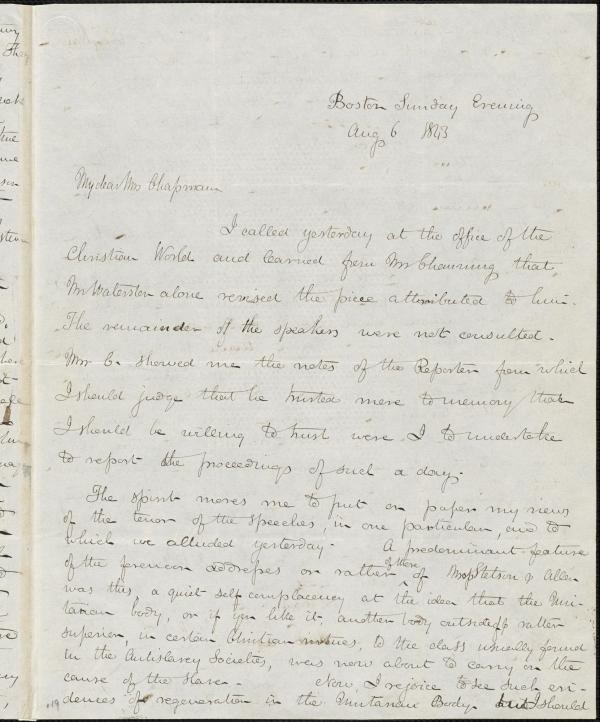 Boston Sunday Evening
Aug 6 1843
My dear Mrs Chapman
I called yesterday at the office of the
Christian World and learned from Mr Channing that
Mr Waterston alone revised the piece attributed to him.
The remainder of the speakers were not consulted.
Mr C. showed me the notes of the Reporter from which
I should judge that he trusted more to memory than
I should be willing to trust were I to undertake
to report the proceedings of such a day.
The spirit moves me to put on paper my views
of the tenor of the speeches, in one particular, and to
which we alluded yesterday. A predominant feature
of the forenoon addresses or rather of those of Stetson & Allen
was this, a quiet self complacency at the idea that the Uni-
tarian body, or if you like it, another body outside of & rather
superior, in certain Christian virtues, to the class usually found
in the Antislavery Societies, was now about to carry on the
cause of the slave. Now I rejoice to see such evi-
dences of regeneration in the Unitarian Body but I should